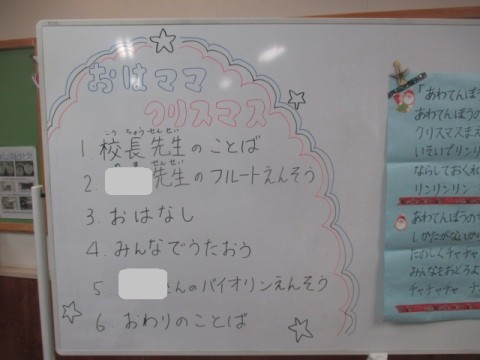 おはママ
クリスマス
1 校長先生のことば
こう ちょう せんせい
2. 先生のフルートえんそう
せんせい
3. おはなし
4. みんなでうたおう
5 さんのバイオリンえんそう
6. おわりのことば
「あわてんぼう
あわてんぼうの
クリスマスまえ
いそいでリンリ
ならしておくれ
リンリンリン
あわてんぼうの
しかたがないか
たのしくチャチャ
みんなもおどろよ
チャチャチャ